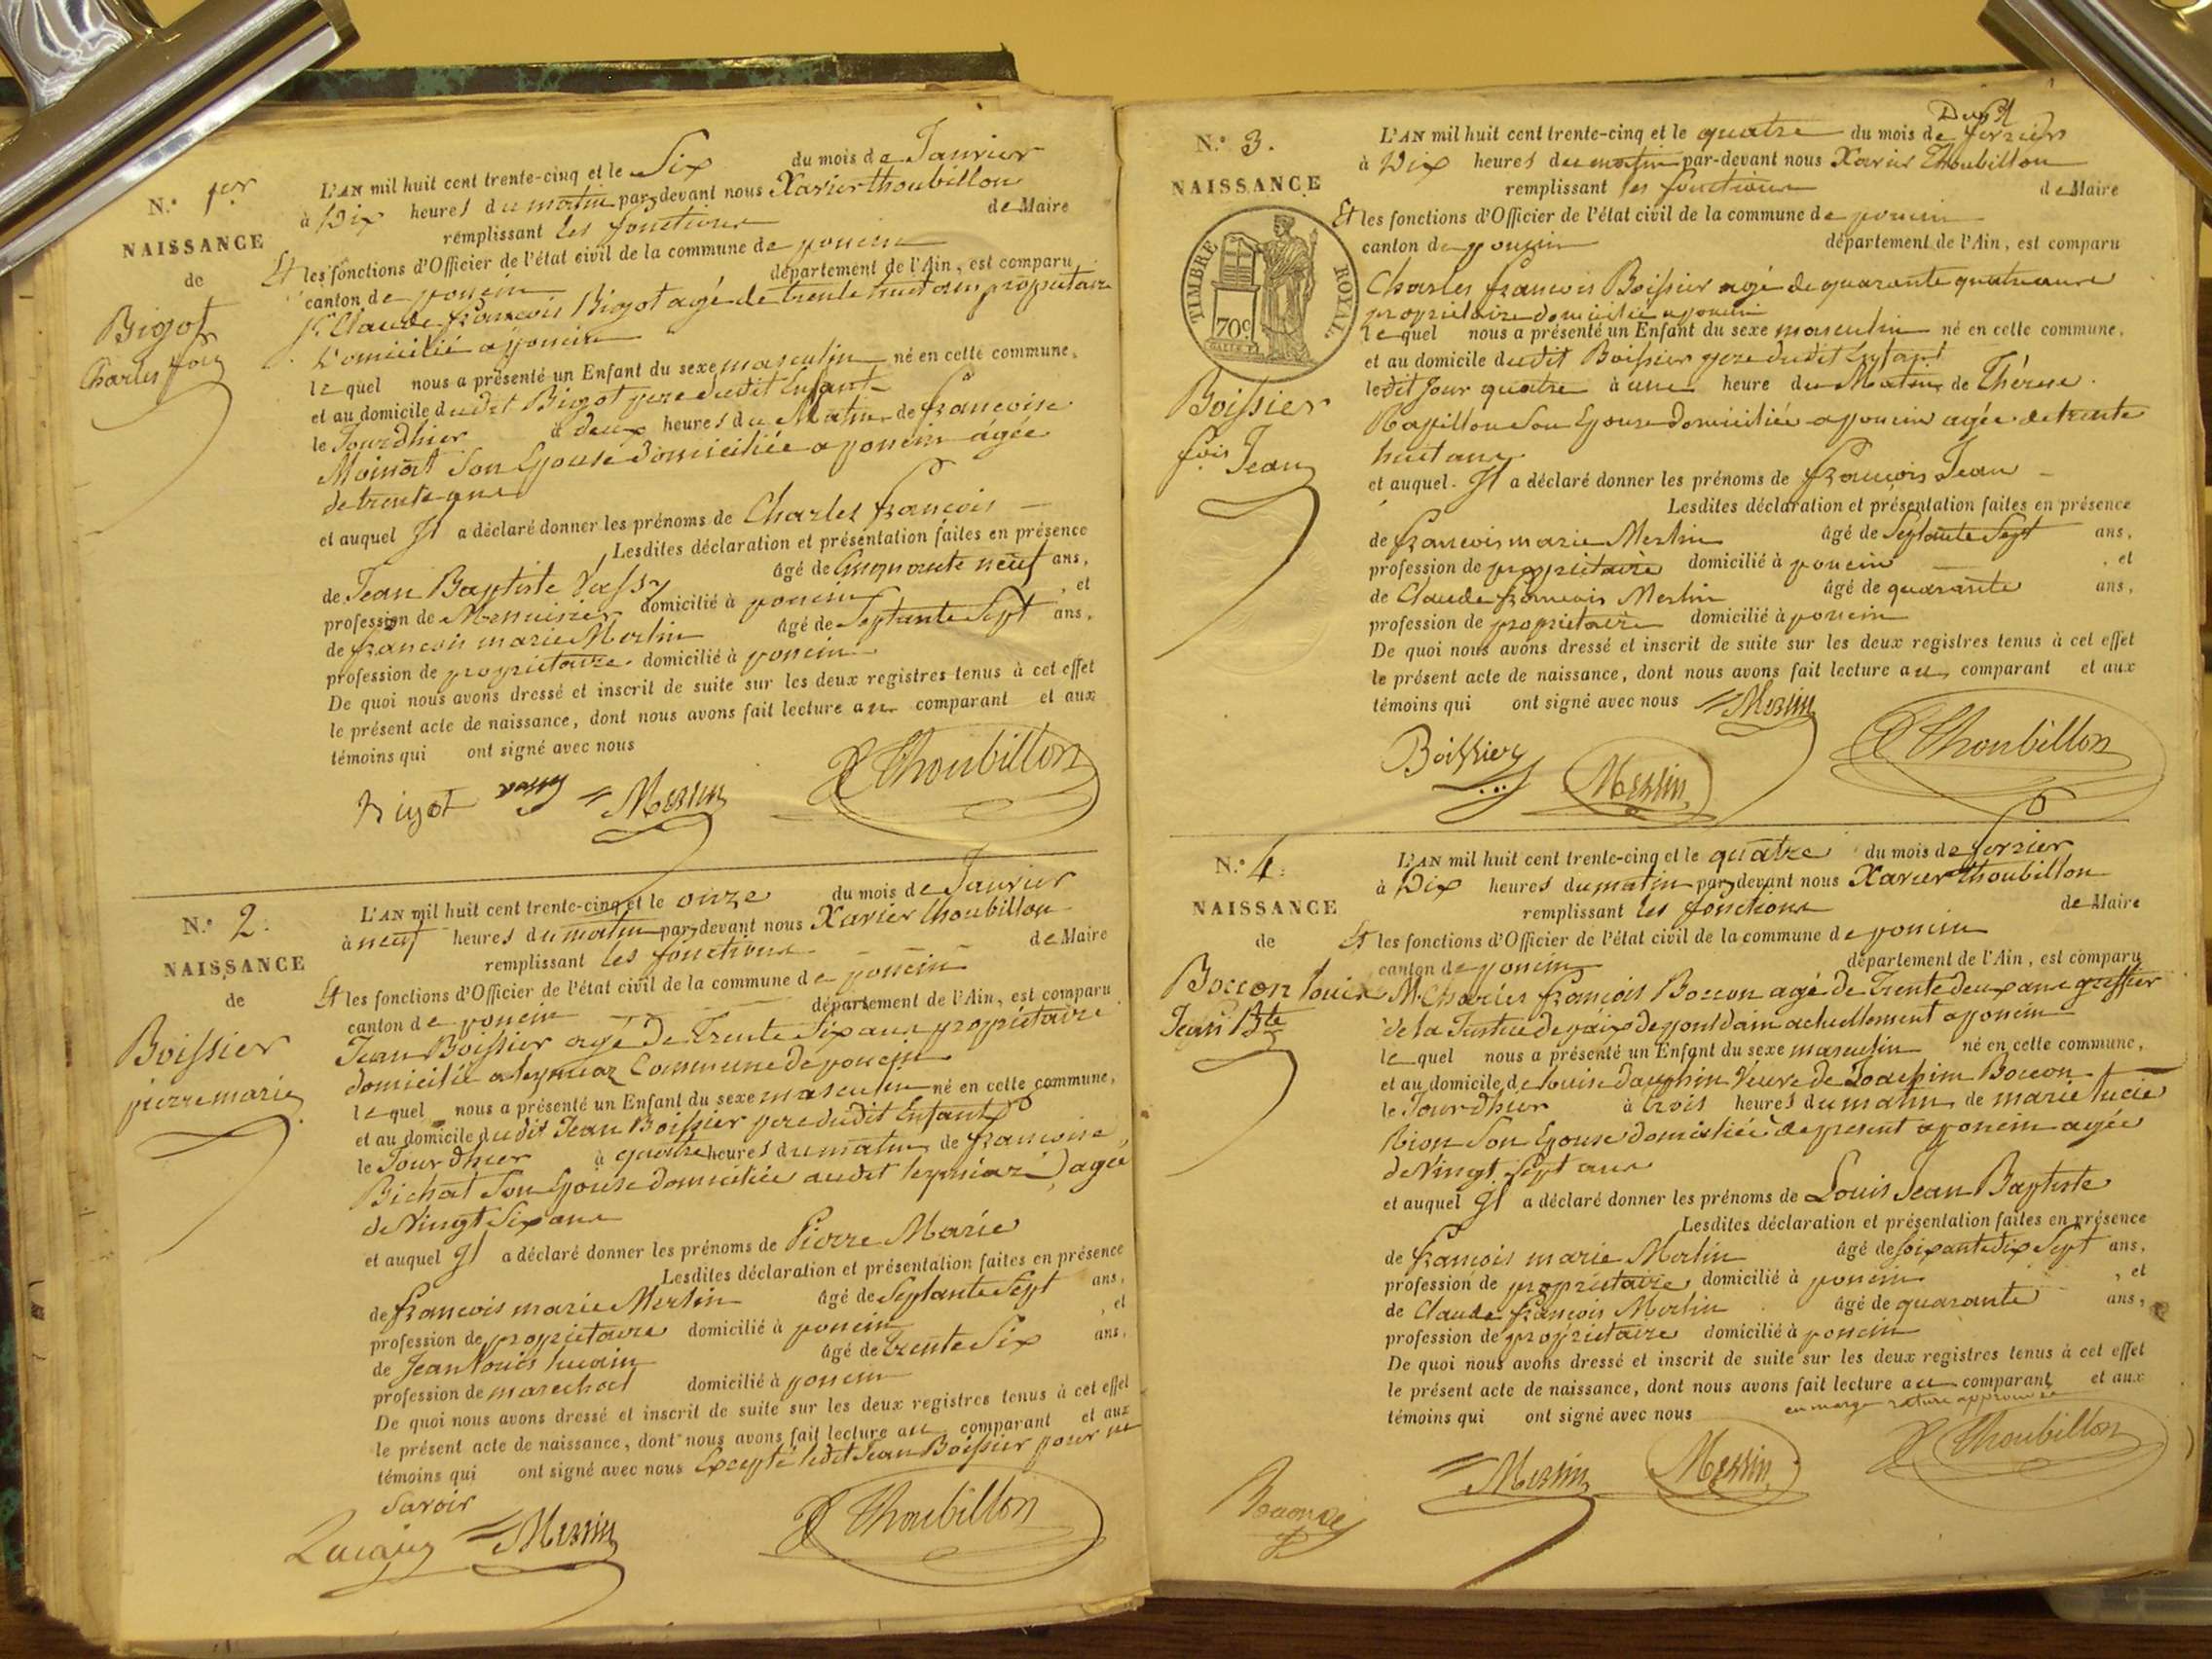 N.º 1er
NAISSANCE
de
Bigot
Charles fois
L'AN mil huit cent trente-cinq et le Six du mois de Janvier
à Dix heures du matin par-devant nous Xavier thoubillon
remplissant les fonctions de Maire
Et les fonctions d'Officier de l'état civil de la commune de poncin
canton de poncin département de l'Ain, est comparu
Sr Claude francois Bigot agé de trente huit ans propriétaire
Domicilié a poncin
lequel nous a présenté un Enfant du sexe masculin né en cette commune,
et au domicile dudit Bigot pere dudit Enfant
le Jourdhier à deux heures du Matin de francoise
Moinat Son Epouse domiciliée a poncin agée
de trente ans
et auquel Il a déclaré donner les prénoms de Charles francois
Lesdites déclaration et présentation faites en présence
de Jean Baptiste Vassy âgé de Cinquante neuf ans,
profession de Menuisier domicilié à poncin, et
de francois marie Merlin âgé de Septante Sept ans,
profession de propriétaire domicilié à poncin
De quoi nous avons dressé et inscrit de suite sur les deux registres tenus à cet effet
le présent acte de naissance, dont nous avons fait lecture au comparant et aux
témoins qui ont signé avec nous
Bigot vassy Merlin X Thoubillon
N.º 2
NAISSANCE
de
Boissier
pierre marie
L'AN mil huit cent trente-cinq et le onze du mois de Janvier
à neuf heures du matin par-devant nous Xavier thoubillon
remplissant les fonctions de Maire
Et les fonctions d'Officier de l'état civil de la commune de poncin
canton de poncin département de l'Ain, est comparu
Jean Boissier agé de Trente Six ans propriétaire
domicilié a leymiaz Commune de poncin
lequel nous a présenté un Enfant du sexe masculin né en cette commune,
et au domicile dudit Jean Boissier pere dudit Enfant
le Jourdhier à quatre heures du matin de francoise
Bichat Son Epouse domiciliée audit leymiaz agée
de Vingt Six ans
et auquel Il a déclaré donner les prénoms de Pierre Marie
Lesdites déclaration et présentation faites en présence
de francois marie Merlin âgé de Septante Sept ans,
profession de propriétaire domicilié à poncin, et
de Jean louis lucain âgé de trente Six ans,
profession de marechal domicilié à poncin
De quoi nous avons dressé et inscrit de suite sur les deux registres tenus à cet effet
le présent acte de naissance, dont nous avons fait lecture au comparant et aux
témoins qui ont signé avec nous Excepté ledit Jean Boissier pour ne
Savoir
Merlin X Thoubillon
N.º 3.
NAISSANCE
TIMBRE ROYAL
70c
Boissier
fois Jean
L'AN mil huit cent trente-cinq et le quatre du mois de fevrier
à Dix heures du matin par-devant nous Xavier Thoubillon
remplissant les fonctions de Maire
Et les fonctions d'Officier de l'état civil de la commune de poncin
canton de poncin département de l'Ain, est comparu
Charles francois Boissier agé de quarante quatre ans
propriétaire domicilié a poncin
lequel nous a présenté un Enfant du sexe masculin né en cette commune,
et au domicile dudit Boissier pere dudit Enfant
ledit Jour quatre à une heure du Matin de Thérese
Papillon Son Epouse domiciliée a poncin agée de trente
huit ans
et auquel Il a déclaré donner les prénoms de François Jean
Lesdites déclaration et présentation faites en présence
de francois marie Merlin âgé de Septante Sept ans,
profession de propriétaire domicilié à poncin, et
de Claude francois Merlin âgé de quarante ans,
profession de propriétaire domicilié à poncin
De quoi nous avons dressé et inscrit de suite sur les deux registres tenus à cet effet
le présent acte de naissance, dont nous avons fait lecture au comparant et aux
témoins qui ont signé avec nous Merlin
Boissier Merlin X Thoubillon
N.º 4.
NAISSANCE
de
Boccon louis
Jean Bte
L'AN mil huit cent trente-cinq et le quatre du mois de fevrier
à Dix heures du matin par-devant nous Xavier thoubillon
remplissant les fonctions de Maire
Et les fonctions d'Officier de l'état civil de la commune de poncin
canton de poncin département de l'Ain, est comparu
M. Charles françois Boccon agé de Trente deux ans greffier
de la Justice de paix de pontdain actuellement a poncin
lequel nous a présenté un Enfant du sexe masculin né en cette commune,
et au domicile de louise dauphin Veuve de Joachim Boccon
le Jourdhier à trois heures du matin de marie lucie
Bion Son Epouse domiciliée de present a poncin agée
de Vingt Sept ans
et auquel Il a déclaré donner les prénoms de Louis Jean Baptiste
Lesdites déclaration et présentation faites en présence
de françois marie Merlin âgé de soixante dix Sept ans,
profession de propriétaire domicilié à poncin, et
de Claude françois Merlin âgé de quarante ans,
profession de propriétaire domicilié à poncin
De quoi nous avons dressé et inscrit de suite sur les deux registres tenus à cet effet
le présent acte de naissance, dont nous avons fait lecture au comparant et aux
témoins qui ont signé avec nous en marge rature approuvée
Merlin Merlin X Thoubillon